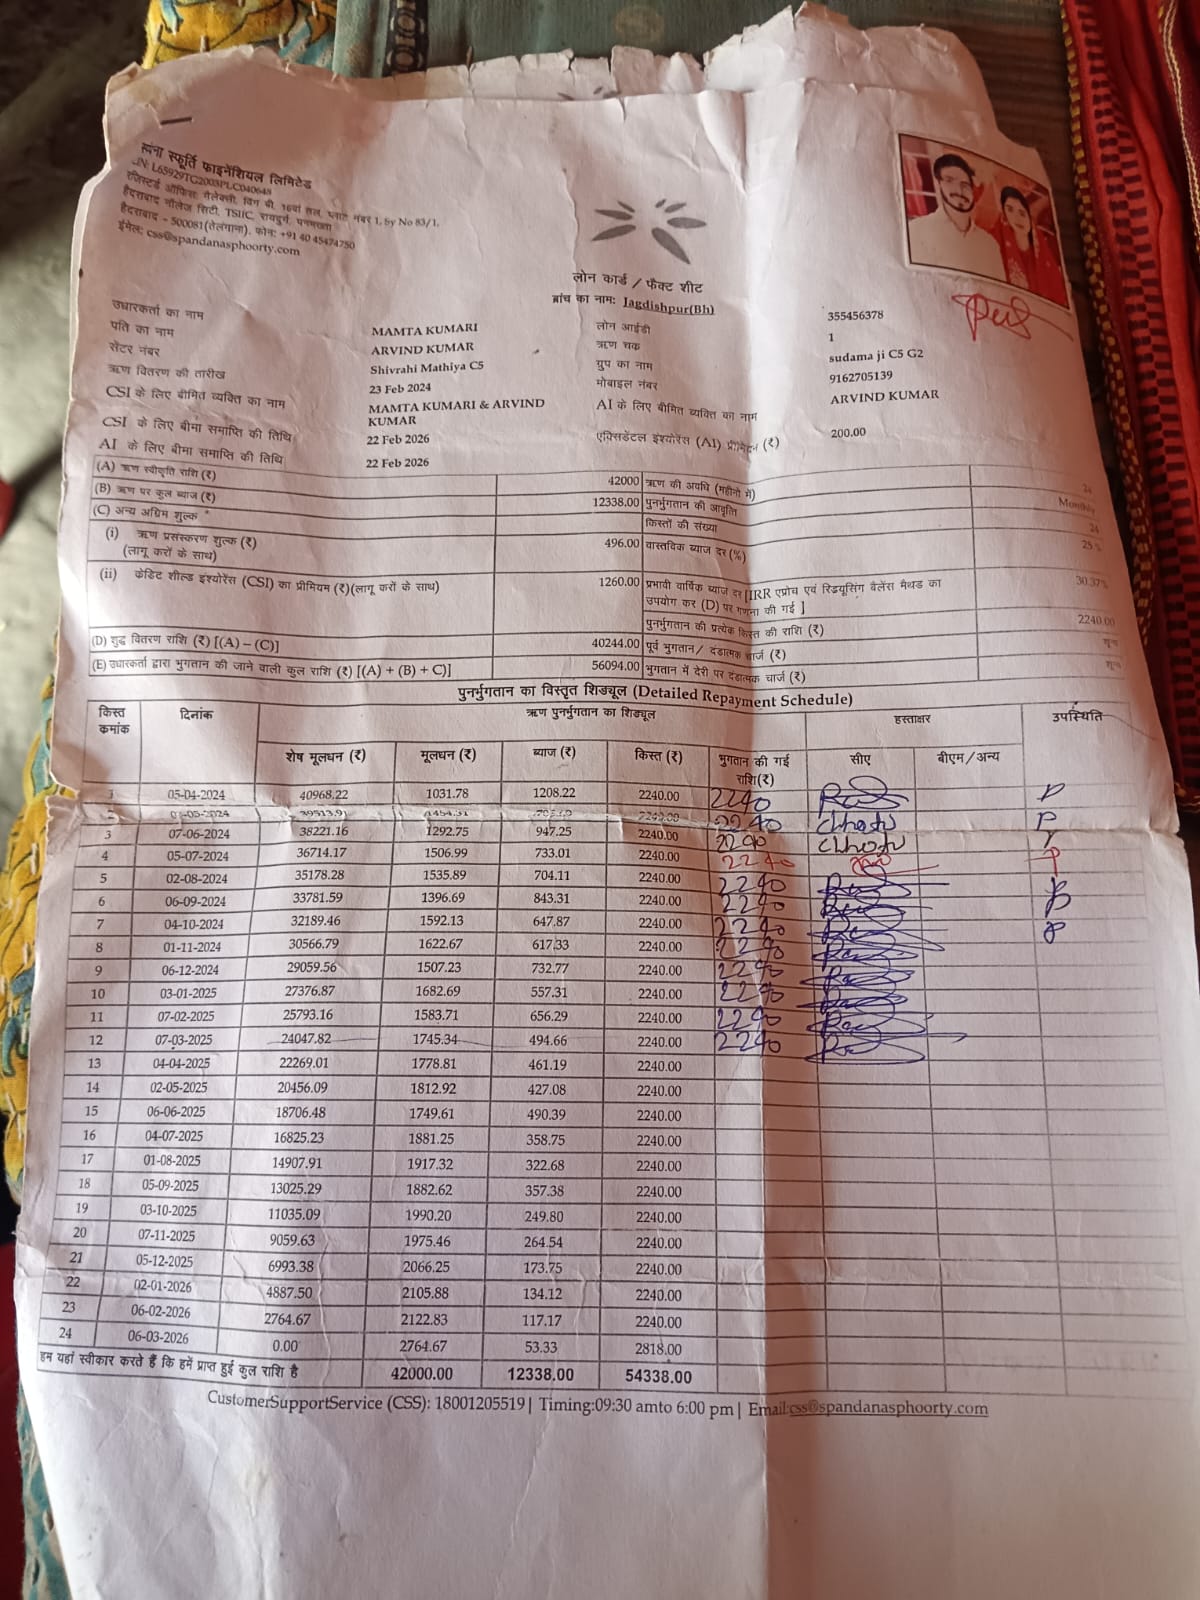 स्पंदना स्फूर्ति फाइनेंशियल लिमिटेड
L65929TG2003PLC040648
रजिस्टर्ड ऑफिस: गैलेक्सी, विंग बी, 16वां तल, प्लाट नंबर 1, Sy No 83/1,
हैदराबाद नॉलेज सिटी, TSIIC, रायदुर्ग, पनमक्ता
हैदराबाद - 500081(तेलंगाना). फोन: +91 40 45474750
ईमेल: css@spandanasphoorty.com
लोन कार्ड / फैक्ट शीट
ब्रांच का नाम: Jagdishpur(Bh)
उधारकर्ता का नाम MAMTA KUMARI लोन आईडी 355456378
पति का नाम ARVIND KUMAR ऋण चक्र 1
सेंटर नंबर Shivrahi Mathiya C5 ग्रुप का नाम sudama ji C5 G2
ऋण वितरण की तारीख 23 Feb 2024 मोबाइल नंबर 9162705139
CSI के लिए बीमित व्यक्ति का नाम MAMTA KUMARI & ARVIND KUMAR AI के लिए बीमित व्यक्ति का नाम ARVIND KUMAR
CSI के लिए बीमा समाप्ति की तिथि 22 Feb 2026 एक्सिडेंटल इंश्योरेंस (AI) प्रीमियम (₹) 200.00
AI के लिए बीमा समाप्ति की तिथि 22 Feb 2026
(A) ऋण स्वीकृति राशि (₹) 42000 ऋण की अवधि (महीनो में) 24
(B) ऋण पर कुल ब्याज (₹) 12338.00 पुनर्भुगतान की आवृत्ति Monthly
(C) अन्य अग्रिम शुल्क * किस्तों की संख्या 24
(i) ऋण प्रसंस्करण शुल्क (₹) (लागू करों के साथ) 496.00 वास्तविक ब्याज दर (%) 25 %
(ii) क्रेडिट शील्ड इंश्योरेंस (CSI) का प्रीमियम (₹)(लागू करों के साथ) 1260.00 प्रभावी वार्षिक ब्याज दर [IRR एप्रोच एवं रिडयूसिंग बैलेंस मैथड का उपयोग कर (D) पर गणना की गई ] 30.37%
पुनर्भुगतान की प्रत्येक किस्त की राशि (₹) 2240.00
(D) शुद्ध वितरण राशि (₹) [(A) – (C)] 40244.00 पूर्व भुगतान/ दंडात्मक चार्ज (₹) शून्य
(E) उधारकर्ता द्वारा भुगतान की जाने वाली कुल राशि (₹) [(A) + (B) + (C)] 56094.00 भुगतान में देरी पर दंडात्मक चार्ज (₹) शून्य
पुनर्भुगतान का विस्तृत शिड्यूल (Detailed Repayment Schedule)
किस्त क्रमांक दिनांक ऋण पुनर्भुगतान का शिड्यूल हस्ताक्षर उपस्थिति
शेष मूलधन (₹) मूलधन (₹) ब्याज (₹) किस्त (₹) भुगतान की गई राशि(₹) सीए बीएम/अन्य
1 05-04-2024 40968.22 1031.78 1208.22 2240.00 2240 P
2 2240.00 2240 Chhotu P
3 07-06-2024 38221.16 1292.75 947.25 2240.00 2240 Chhotu
4 05-07-2024 36714.17 1506.99 733.01 2240.00 2240 P
5 02-08-2024 35178.28 1535.89 704.11 2240.00 2240
6 06-09-2024 33781.59 1396.69 843.31 2240.00 2240 P
7 04-10-2024 32189.46 1592.13 647.87 2240.00 2240 P
8 01-11-2024 30566.79 1622.67 617.33 2240.00 2240
9 06-12-2024 29059.56 1507.23 732.77 2240.00 2240
10 03-01-2025 27376.87 1682.69 557.31 2240.00 2240
11 07-02-2025 25793.16 1583.71 656.29 2240.00 2240
12 07-03-2025 24047.82 1745.34 494.66 2240.00 2240
13 04-04-2025 22269.01 1778.81 461.19 2240.00
14 02-05-2025 20456.09 1812.92 427.08 2240.00
15 06-06-2025 18706.48 1749.61 490.39 2240.00
16 04-07-2025 16825.23 1881.25 358.75 2240.00
17 01-08-2025 14907.91 1917.32 322.68 2240.00
18 05-09-2025 13025.29 1882.62 357.38 2240.00
19 03-10-2025 11035.09 1990.20 249.80 2240.00
20 07-11-2025 9059.63 1975.46 264.54 2240.00
21 05-12-2025 6993.38 2066.25 173.75 2240.00
22 02-01-2026 4887.50 2105.88 134.12 2240.00
23 06-02-2026 2764.67 2122.83 117.17 2240.00
24 06-03-2026 0.00 2764.67 53.33 2818.00
हम यहाँ स्वीकार करते हैं कि हमें प्राप्त हुई कुल राशि है 42000.00 12338.00 54338.00
CustomerSupportService (CSS): 18001205519| Timing:09:30 amto 6:00 pm| Email:css@spandanasphoorty.com